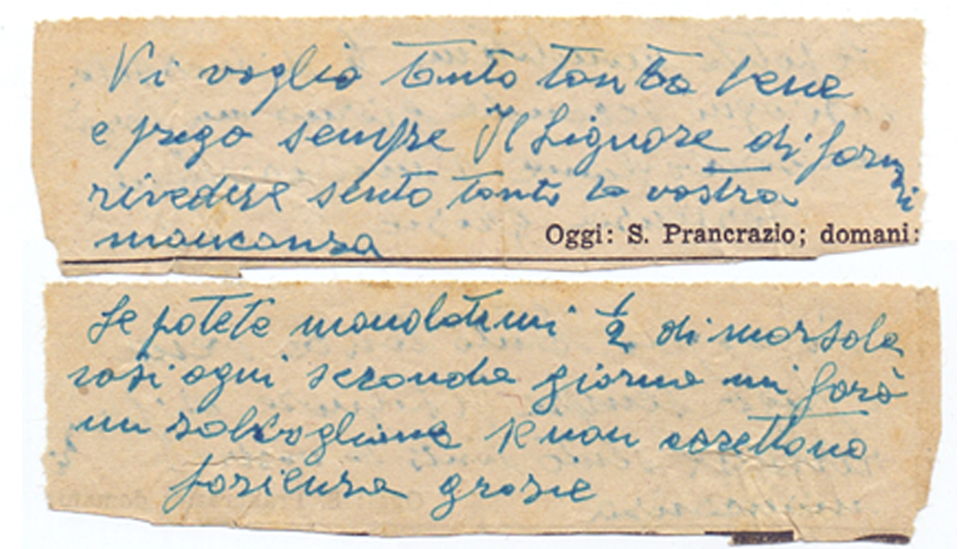 Vi voglio tanto tanto bene
e prego sempre Il Signore di farvi
rivedere sento tanto la vostra
mancanza
Oggi: S. Prancrazio; domani:
Se potete mandatemi ½ di marsala
così ogni seconda giorno mi farò
un zabaglione se non accettano
pazienza grazie